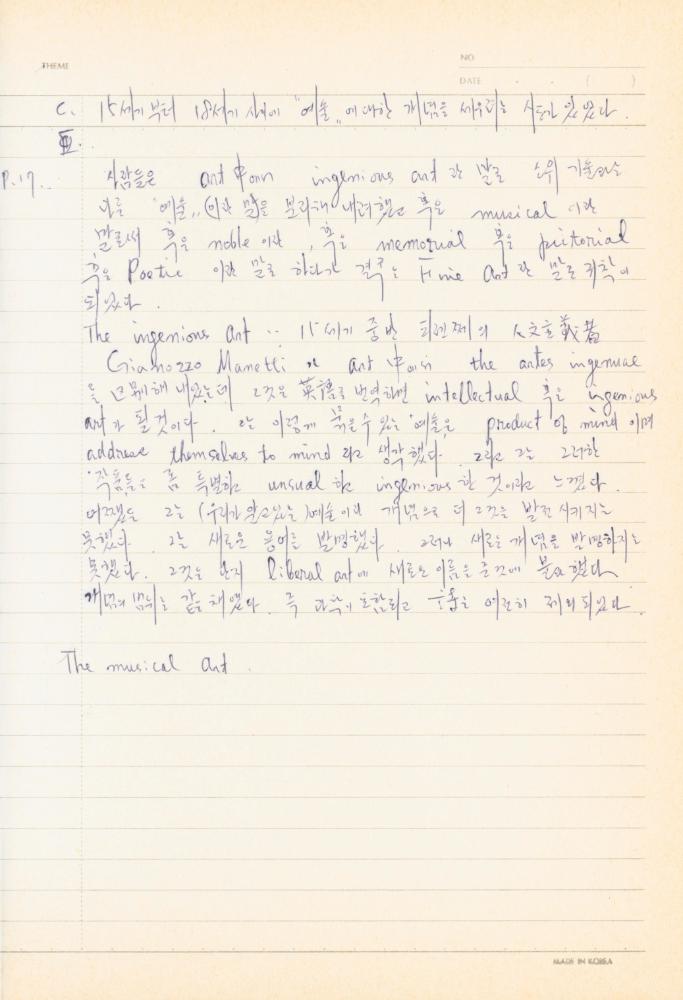 THEME
NO
DATE . . ( )
C. 15세기부터 18세기 사이에 "예술"에 대한 개념을 세우려는 시도가 있었다.
II.
P.17. 사람들은 art 中에서 ingenious art 라 말로 소위 기술과는
다른 "예술" (이란 말)을 분리해 내려했고 혹은 musical 이란
말로써 혹은 noble 이란, 혹은 memorial 혹은 pictorial
혹은 Poetic 이란 말로 하다가 결국은 Fine Art 란 말로 귀착이
되었다.
The ingenious Art 15세기 중반 피렌체의 人文主義者
Gianozzo Manetti 가 art 中에서 the artes ingenuae
을 구분해 내었는데 그것은 英語로 번역하면 intellectual 혹은 ingenious
art 가 될 것이다. 그는 이렇게 묶을 수 있는 예술은 product of mind 이며
address themselves to mind 라고 생각했다. 그리고 그는 그러한
작품들은 좀 특별하고 unsual 하고 ingenious 한 것이라고 느꼈다.
어쨌든 그는 (우리가 알고있는) 예술이란 개념으로 더 그것을 발전시키지는
못했다. 그는 새로운 용어를 발명했다. 그러나 새로운 개념을 발명하지는
못했다. 그것은 단지 liberal art에 새로운 이름을 준 것에 불과했다.
개념의 범위는 같은 채였다. 즉 과학이 포함되고 여전히 제외되었다.
The musical Art.
MADE IN KOREA